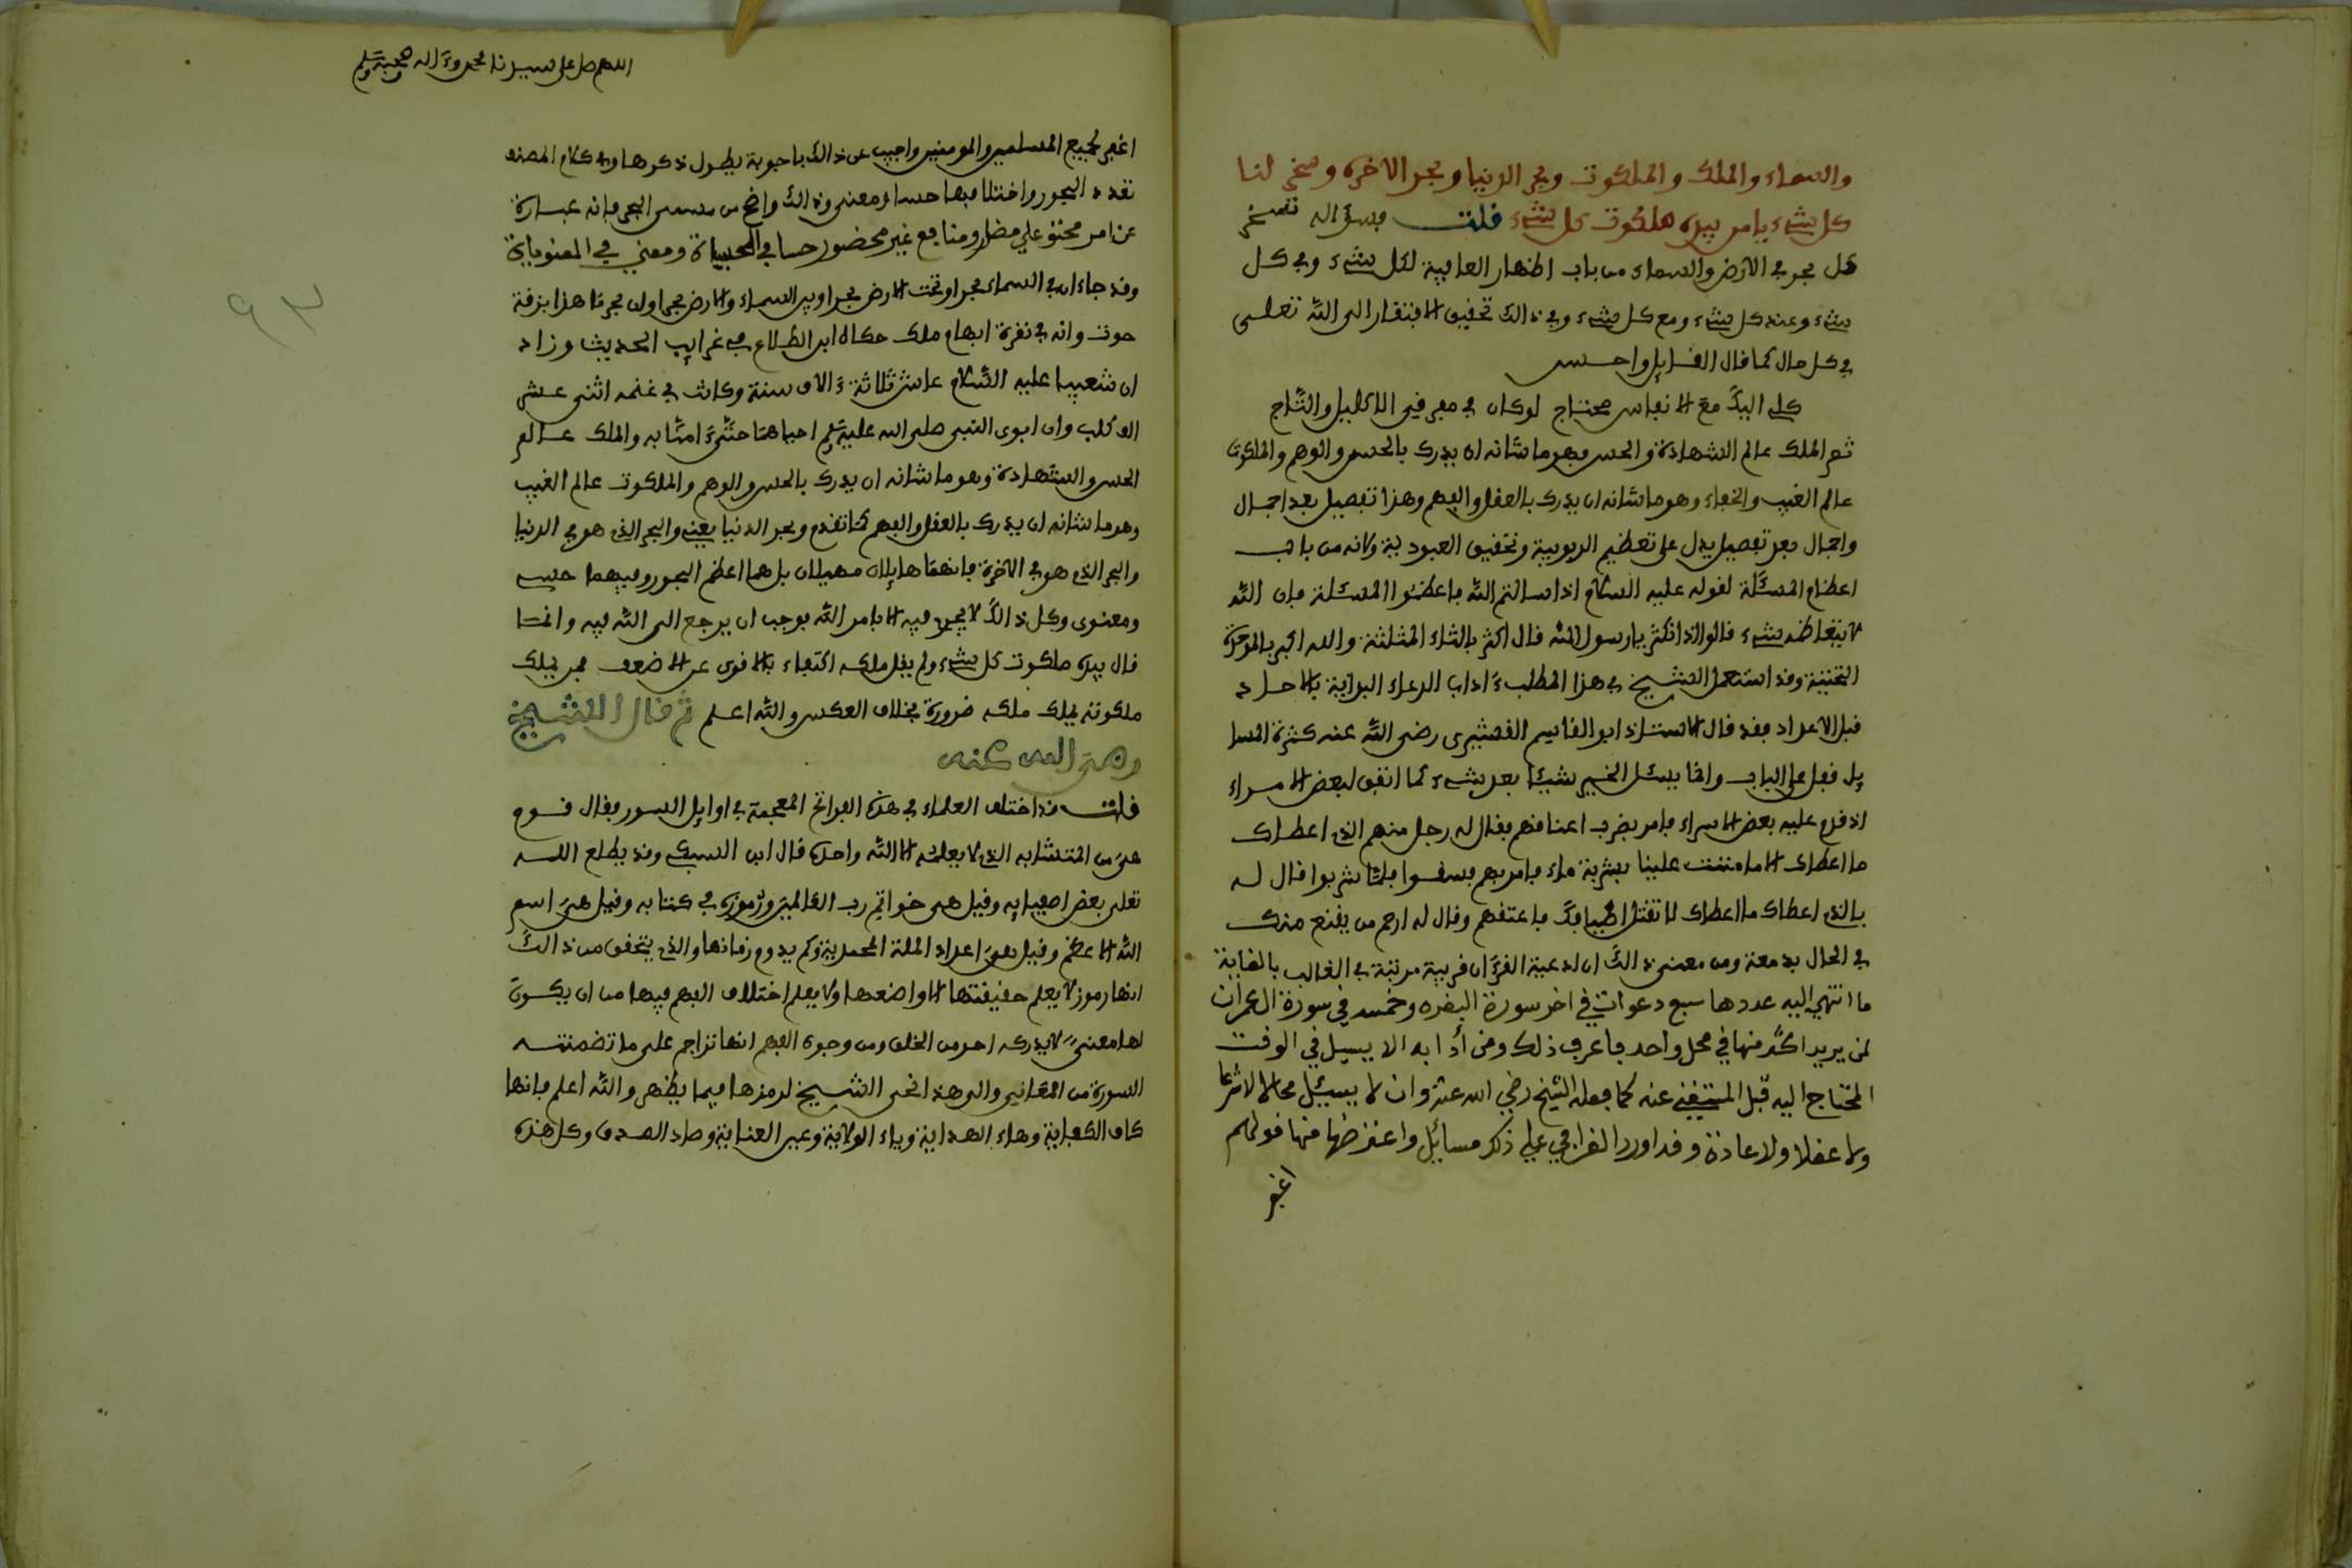 والسماء والملك والملكوت وبحر الدنيا وبحر الاخرة وسخر لنا
كل شيء يا من بيده ملكوت كل شيء قلت وسؤاله تسخير
كل بحر في الارض والسماء من باب اظهار العافية لكل شيء وفي كل
شيء وعند كل شيء ومع كل شيء وفي ذالك تحقيق الافتقار الى الله تعلى
في كل حال كما قال القايل واحسن
كلي اليك مع الانفاس محتاج لو كان في مفرقي الاكليل والتاج
ثم الملك عالم الشهادة والحس وهو ما شانه ان يدرك بالحس والوهم والملكوت
عالم الغيب والخفاء وهو ما شانه ان يدرك بالعقل والفهم وهذا تفصيل بعد اجمال
واجمال بعد تفصيل يدل على تعظيم الربوبية وتحقيق العبودية ولانه من باب
اعظام المسئلة لقوله عليه السلام اذا سالتم الله فاعظموا المسئلة فان الله
لا يتعاظمه شيء قالوا اذا نكثر يا رسول الله قال اكثر بالثاء المثلثة والله اكبر بالموحدة
التحتية وقد استعمل الشيخ في هذا المطلب ءاداب الدعاء البداية بالاحاد
قبل الاعداد فقد قال الاستاذ ابو القاسم القشيري رضي الله عنه كثرة المسا
يل قفل على الباب وانما يسئل الخير شيئا بعد شيء كما اتفق لبعض الامراء
اذ قدم عليه بعض الاسراء فامر بضرب اعناقهم فقال له رجل منهم الذي اعطاك
ما اعطاك الا ما مننت علينا بشربة ماء فامر بهم فسقوا فلما شربوا قال له
بالذي اعطاك ما اعطاك لا تقتل اضيافك فاعتقهم وقال له ارحم من يقنع منك
في الحال بدمعة ومن معنى ذالك ان ادعية القرءان قريبة مرتبة في الغالب بالغاية
ما انتهى اليه عددها سبع دعوات في اخر سورة البقره وخمسه في سورة ال عمران
لمن يريد اكثر منها في محل واحد فاعرف ذلك ومن أدابه الا يسيل في الوقت
المحتاج اليه قبل المستغني عنه كما فعله الشيخ رضي الله عنه وان لا يسيل محالا لا شرعا
ولا عقلا ولا عادة وقد اورد القرافي على ذلك مسائل واعترضها منها قولهم
اغفر
اللهم صل على سيدنا محمد وءاله وصحبه وسلم
اغفر لجميع المسلمين والمومنين واجيب عن ذالك باجوبة يطول ذكرها وفي كلام المصنف
تعدد البحور واختلافها حسا ومعنى وذالك واضح من مسمى البحر فانه عبارة
عن امر محتو على مضار ومنافع غير محصور حسا في الحسيات ومعنى في المعنويات
وقد جاء ان في السماء بحرا وتحت الارض بحرا وبين السماء والارض بحرا وان بحرنا هذا بزقة
حوت وانه في نقرة ابهام ملك حكاه ابن الطلاع في غرايب الحديث وزاد
ان شعيبا عليه السلام عاش ثلاثة ءالاف سنة وكانت في غنمه اثنى عشر
الف كلب وان ابوى النبي صلى الله عليه وسلم احياهما حتى ءامنا به والملك عالم
الحس والشهادة وهو ما شانه ان يدرك بالحس والوهم والملكوت عالم الغيب
وهو ما شانه ان يدرك بالعقل والفهم كما تقدم وبحر الدنيا يعني والبحر الذي هو في الدنيا
والبحر الذي هو في الاخرة فانهما هايلان مهيلان بل هما اعظم البحور وفيهما حسي
ومعنوى وكل ذالك لا يجرى فيه الا بامر الله يوجب ان يرجع الى الله فيه وانما
قال بيده ملكوت كل شيء ولم يقل ملكه اكتفاء بالاقوى عن الاضعف فمن يملك
ملكوته يملك ملكه ضرورة بخلاف العكس والله اعلم ثم قال الشيخ
رضي الله عنه
قلت قد اختلف العلماء في هذه الفواتح المعجمة في اوايل السور فقال قوم
هي من المتشابه الذي لا يعلمه الا الله واحد قال ابن السبكي وقد يطلع الله
تعلى بعض اصفيايه وقيل هى خواتم رب العالمين ورموزه في كتابه وقيل هي اسم
الله الاعظم وقيل هي اعداد الملة المحمدية وكم يدوم زمانها والذي يتحقق من ذالك
انها رموز لا يعلم حقيقتها الا واضعها ولا يعلم اختلاف الفهم فيها من ان يكون
لها معنى لا يدركه احد من الخلق ومن وجوه الفهم انها تراجم على ما تضمنته
السورة من المعاني والى هذا نحى الشيخ لرمزها فيما يظهر والله اعلم فانها
كاف الكفاية وهاء الهداية وياء الولاية وعين العناية وصاد الصدق وكل هذه
٩٣